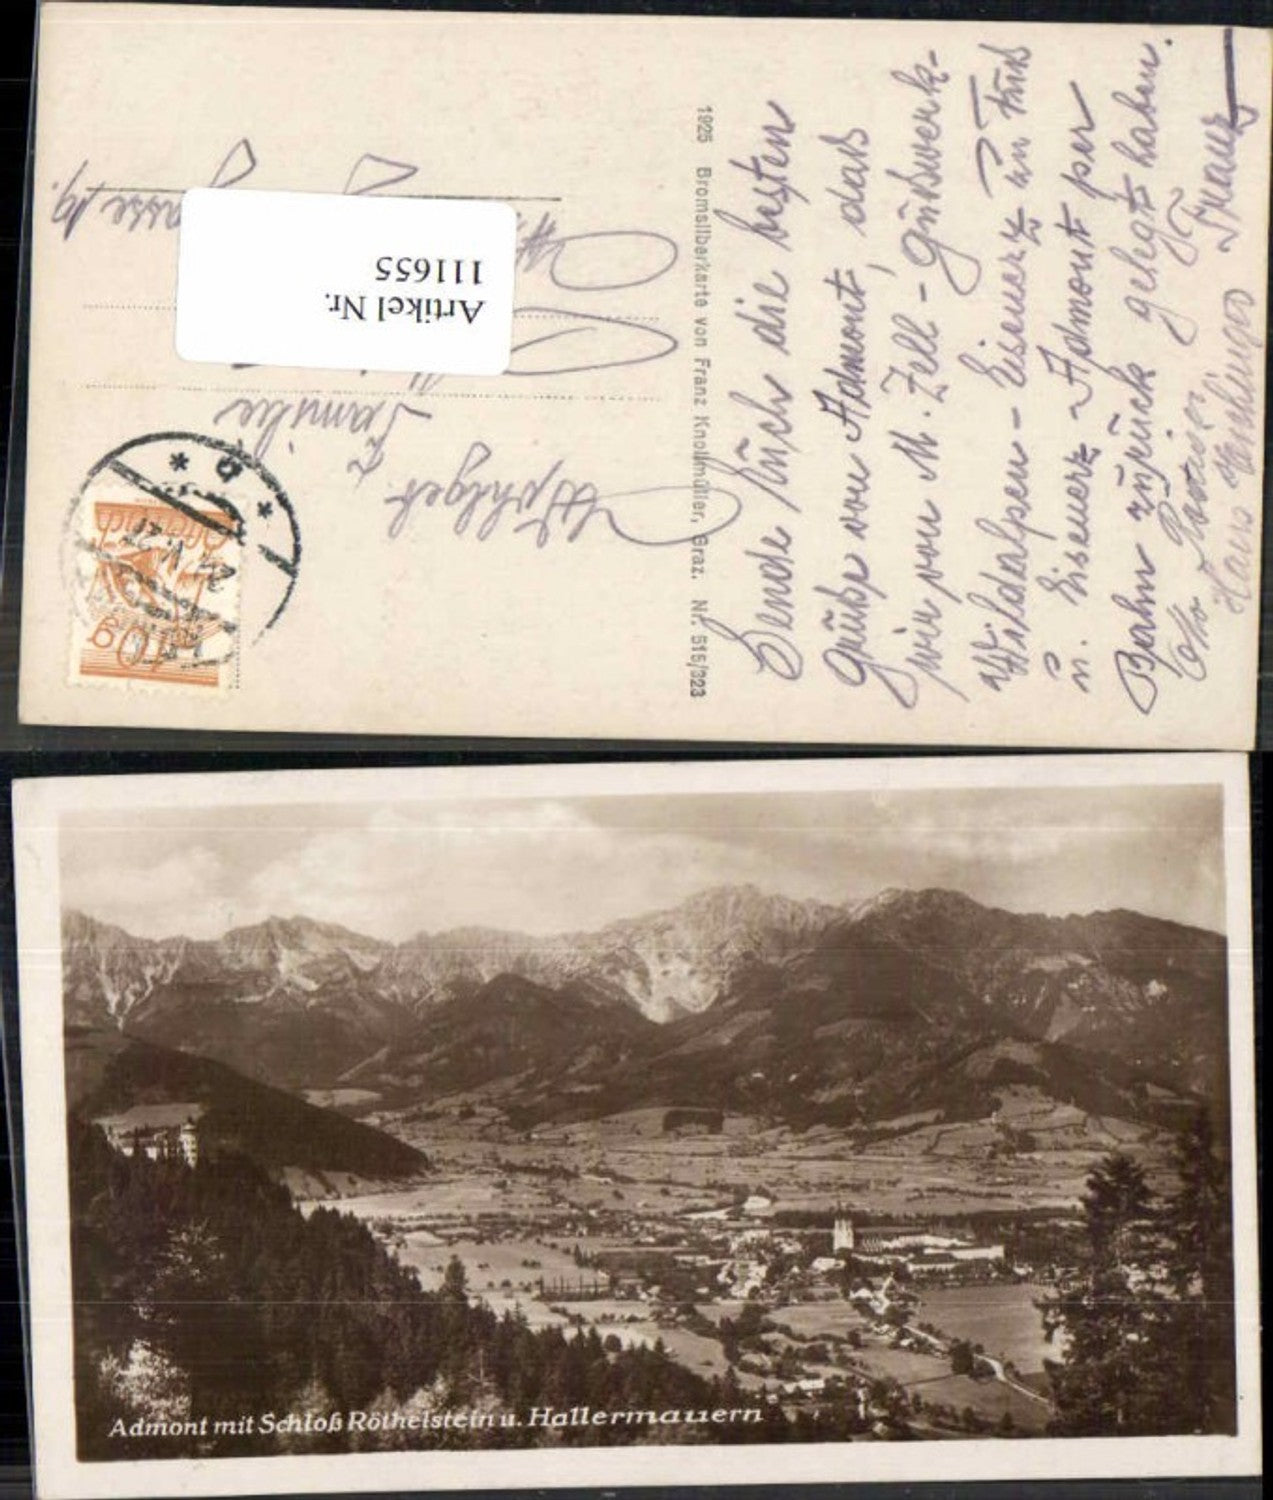 Sende Euch die besten
Grüße von Admont, daß
wir von M. Zell - Gußwerk-
Wildalpen - Eisenerz zu Fuß
u. Eisenerz - Admont per
Bahn zurück gelegt haben.
Franz
Otto
Hans
1925 Bromsilberkarte von Franz Knollmüller, Graz. Nr. 515/323
Wohlgeb.
Familie
gasse 19.
Artikel Nr.
111655
10g
Österreich
Admont mit Schloß Röthelstein u. Hallermauern